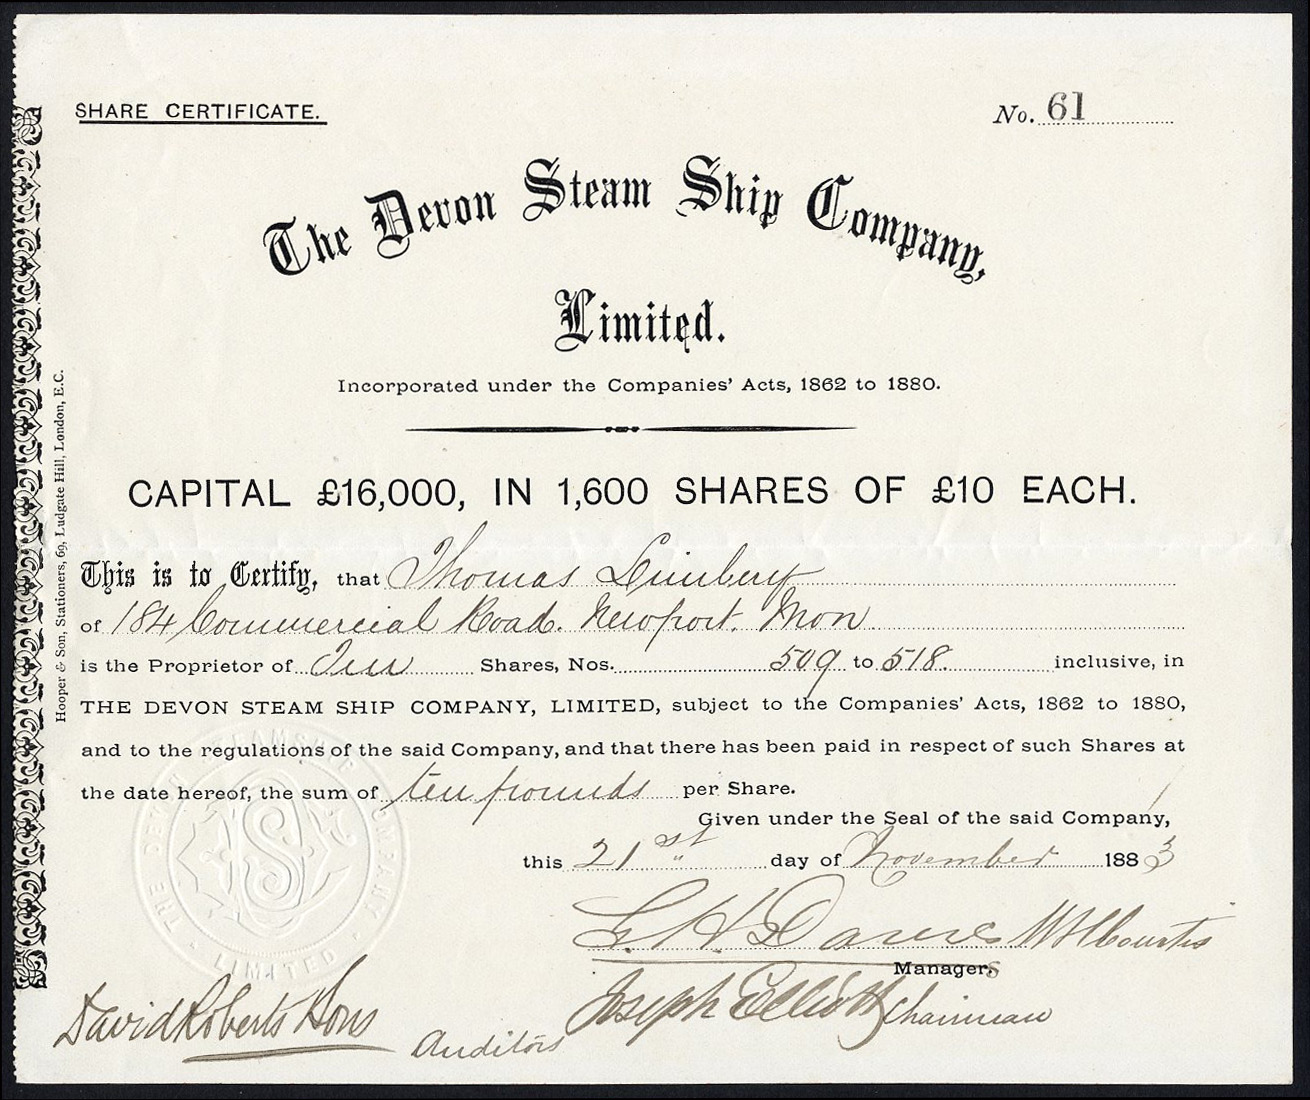 SHARE CERTIFICATE.
No. 61
The Devon Steam Ship Company,
Limited.
Incorporated under the Companies' Acts, 1862 to 1880.
CAPITAL £16,000, IN 1,600 SHARES OF £10 EACH.
This is to Certify, that Thomas
of 184 Commercial Road. Newport Mon
is the Proprietor of Ten Shares, Nos. 509 to 518. inclusive, in
THE DEVON STEAM SHIP COMPANY, LIMITED, subject to the Companies' Acts, 1862 to 1880,
and to the regulations of the said Company, and that there has been paid in respect of such Shares at
the date hereof, the sum of ten pounds per Share.
Given under the Seal of the said Company,
this 21st day of November 1883
W H Courtis
Managers
Joseph Elliott Chairman
David Roberts & Sons
Auditors
Hooper & Son, Stationers, 69, Ludgate Hill, London, E.C.
THE DEVON STEAMSHIP COMPANY
LIMITED